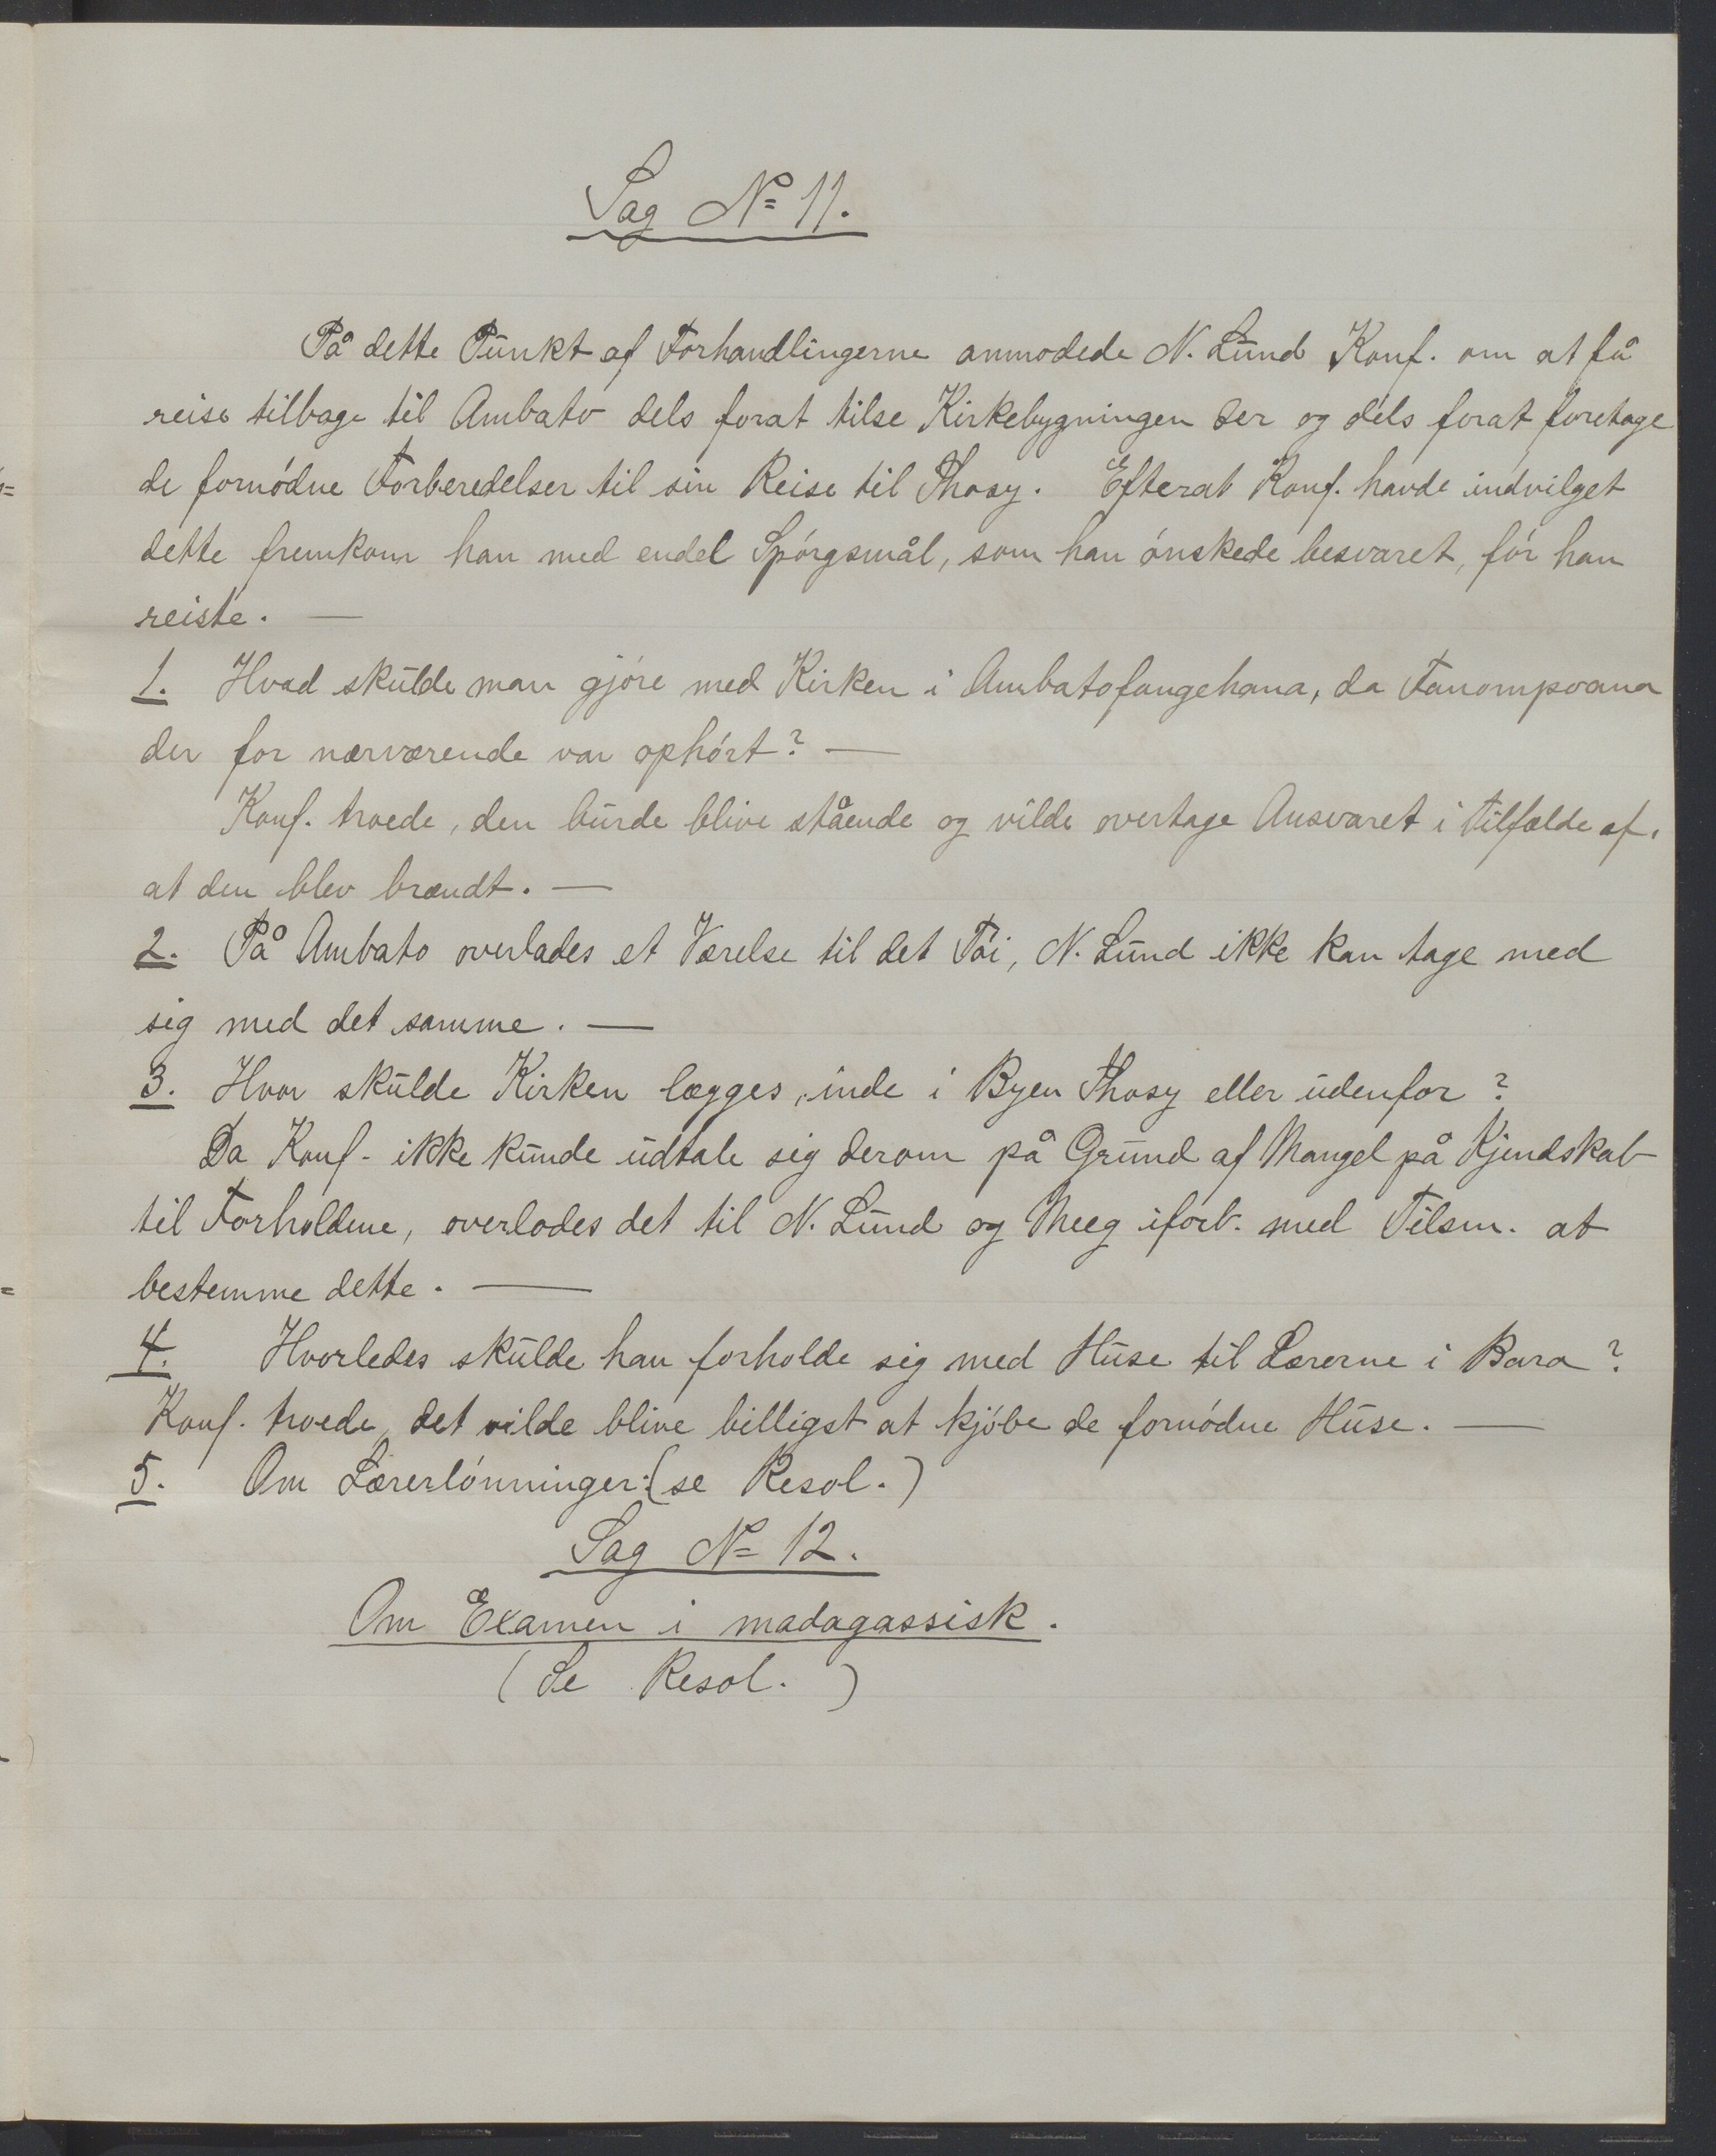 Sag No 11.
På dette Punkt af Forhandlingerne anmodede N. Lund Konf. om at få
reise tilbage til Ambato dels forat tilse Kirkebygningen der og dels forat foretage
de fornødne Forberedelser til sin Reise til Ihosy. Efterat Konf. havde indvilget
dette fremkom han med endel Spørgsmål, som han ønskede besvaret, før han
reiste. —
1. Hvad skulde man gjøre med Kirken i Ambatofangehana, da Fanompoana
der for nærværende var ophørt? —
Konf. troede, den burde blive stående og vilde overtage Ansvaret i Tilfælde af,
at den blev brændt. —
2. På Ambato overlades et Værelse til det Tøi, N. Lund ikke kan tage med
sig med det samme. —
3. Hvor skulde Kirken lægges, inde i Byen Ihosy eller udenfor?
Da Konf. ikke kunde udtale sig derom på Grund af Mangel på Kjendskab
til Forholdene, overlodes det til N. Lund og Meeg iforb. med Tilsm. at
bestemme dette. —
4. Hvorledes skulde han forholde sig med Huse til Lærerne i Bara?
Konf. troede, det vilde blive billigst at kjøbe de fornødne Huse. —
5. Om Lærerlønninger: (se Resol.)
Sag No 12.
Om Examen i madagassisk.
(Se Resol.)